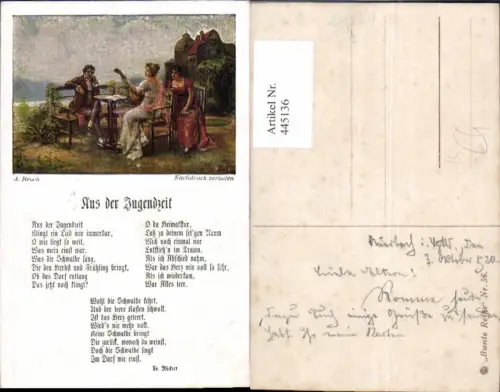 A. Broch
Nachdruck verboten
Aus der Jugendzeit
Aus der Jugendzeit
Klingt ein Lied mir immerdar,
O wie liegt so weit,
Was mein einst war.
Was die Schwalbe sang,
Die den Herbst und Frühling bringt,
Ob das Dorf entlang
Das jetzt noch klingt?
O du Heimatflur,
Laß zu deinem sel'gen Raum
Mich noch einmal nur
Entflieh'n im Traum.
Als ich Abschied nahm,
War das Herz mir voll so sehr,
Als ich wiederkam,
War Alles leer.
Wohl die Schwalbe kehrt,
Und der leere Kasten schwoll,
Ist das Herz geleert,
Wird's nie mehr voll.
Keine Schwalbe bringt
Dir zurück, wonach du weinst,
Doch die Schwalbe singt
Im Dorf wie einst.
Fr. Rückert
Artikel Nr.
445136
Auerbach i. Vogtl., den
3. Oktober 20.
Liebe
heute
einige Grüße
"Bunte Reihe" Nr. 36.